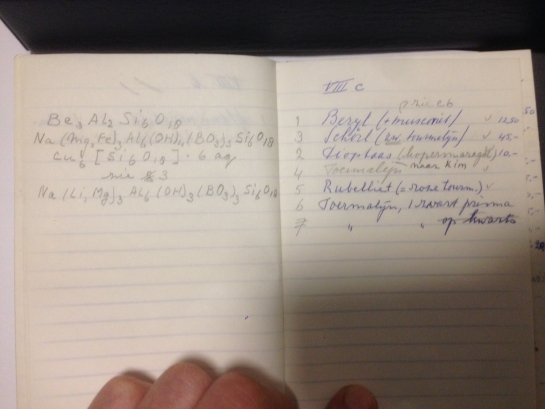 Be3 Al2 Si6 O18
Na (Mg, Fe)3 Al6 (OH)4 (BO3)3 Si6 O18
Cu6 [Si6 O18] · 6 aq
zie 3
Na (Li, Mg)3 Al6 (OH)4 (BO3)3 Si6 O18
VIII C
prices
1 Beryl (+ muscovit) 12.50
3 Schörl (zw. turmalyn) 45.-
2 Dioptaas (kopersmaragd) 10.-
4 Toermalyn naar Kim
5 Rubelliet (= roze toerm.)
6 Toermalyn, 1 zwart prisma
7 " " op kwarts